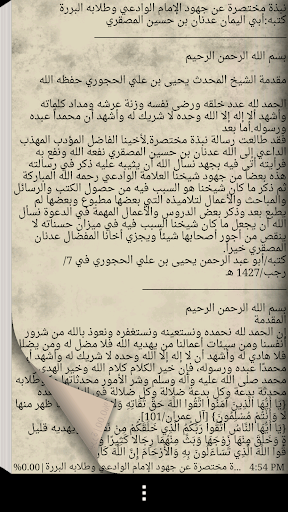 نبذة مختصرة عن جهود الإمام الوادعي وطلابه البررة
كتبه:أبي اليمان عدنان بن حسين المصقري
بسم الله الرحمن الرحيم
مقدمة الشيخ المحدث يحيى بن علي الحجوري حفظه الله
الحمد لله عدد خلقه ورضى نفسه وزنة عرشه ومداد كلماته
وأشهد أن لا إله إلا الله وحده لا شريك له وأشهد أن محمداً عبده
ورسوله.أما بعد
فقد طالعت رسالة نبذة مختصرة.لأخينا الفاضل المؤدب المهذب
الداعي إلى الله عدنان بن حسين المصقري نفع الله ونفع به
فرأيته أتى فيه بجهد نسأل الله أن يثيبه عليه ذكر في رسالته
هذه بعضا من جهود شيخنا العلامة الوادعي رحمه الله المباركة
ثم ذكر ما كان شيخنا هو السبب فيه من حصول الكتب والرسائل
والمباحث والأعمال لتلاميذه التي بعضها مطبوع وبعضها لم
يطبع بعد وذكر بعض الدروس والأعمال المهمة في الدعوة نسأل
الله أن يجعل ما كان شيخنا السبب فيه في ميزان حسناته لا
ينقص من أجور أصحابها شيئا ويجزي أخانا المفضال عدنان
المصقري خيراً.
كتبه/أبو عبد الرحمن يحيى بن علي الحجوري في 7/
رجب/1427 هـ
بسم الله الرحمن الرحيم
المقدمة
إن الحمد لله نحمده ونستعينه ونستغفره ونعوذ بالله من شرور
أنفسنا ومن سيئات أعمالنا من يهديه الله فلا مضل له ومن يضلل
فلا هادي له وأشهد أن لا إله إلا الله وحده لا شريك له وأشهد أن
محمدًا عبده ورسوله، فإن خير الكلام كلام الله وخير الهدي
محمد صلى الله عليه وآله وسلم وشر الأمور محدثاتها
محدثة بدعة وكل بدعة ضلالة وكل ضلالة في
{يَا أَيُّهَا الَّذِينَ آمَنُوا اتَّقُوا اللَّهَ حَقَّ تُقَاتِهِ وَلَا
وَأَنْتُمْ مُسْلِمُونَ} [آل عمران/101].
{يَا أَيُّهَا النَّاسُ اتَّقُوا رَبَّكُمُ الَّذِي خَلَقَكُمْ مِنْ
وَخَلَقَ مِنْهَا زَوْجَهَا وَبَثَّ مِنْهُمَا رِجَالًا كَثِيرًا
اللَّهَ الَّذِي تَسَاءَلُونَ بِهِ وَالْأَرْحَامَ إِنَّ اللَّهَ كَانَ
%0.00 | ة مختصرة عن جهود الإمام الوادعي وطلابه البررة... 4:54 PM